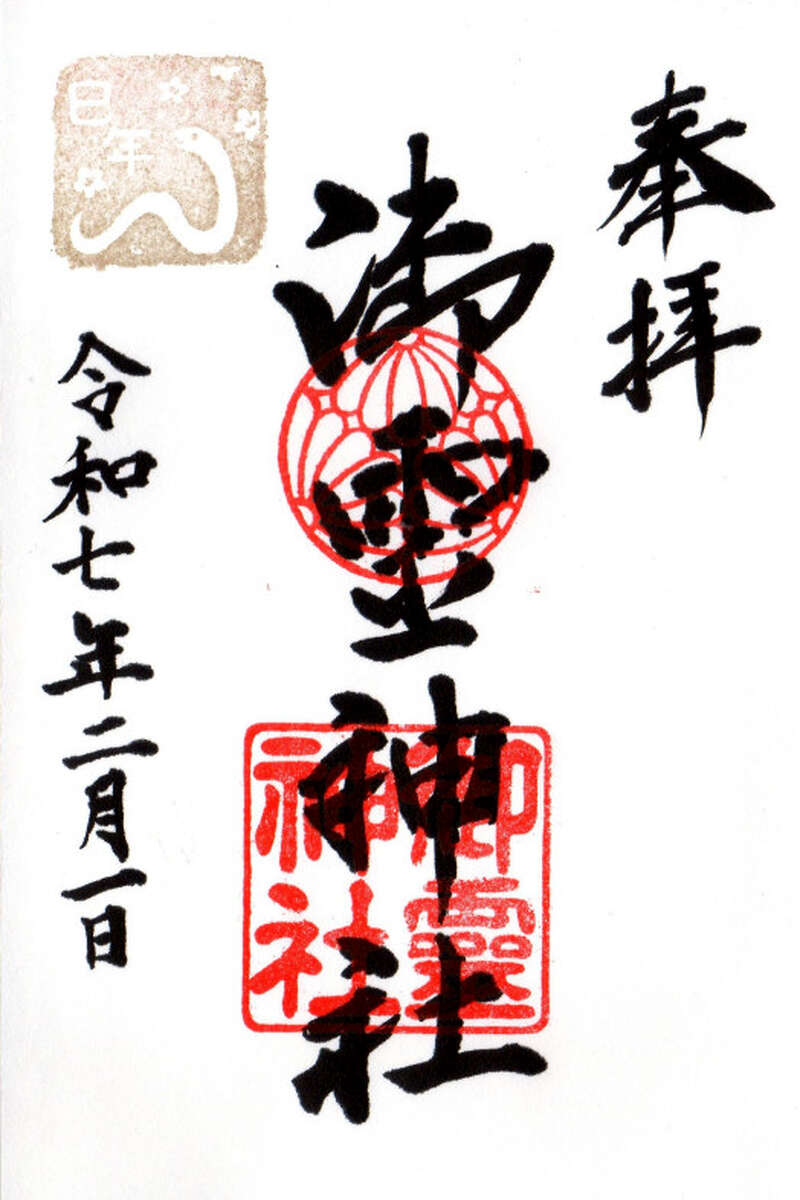 奉拝
御霊神社
御霊神社
令和七年二月一日
巳年